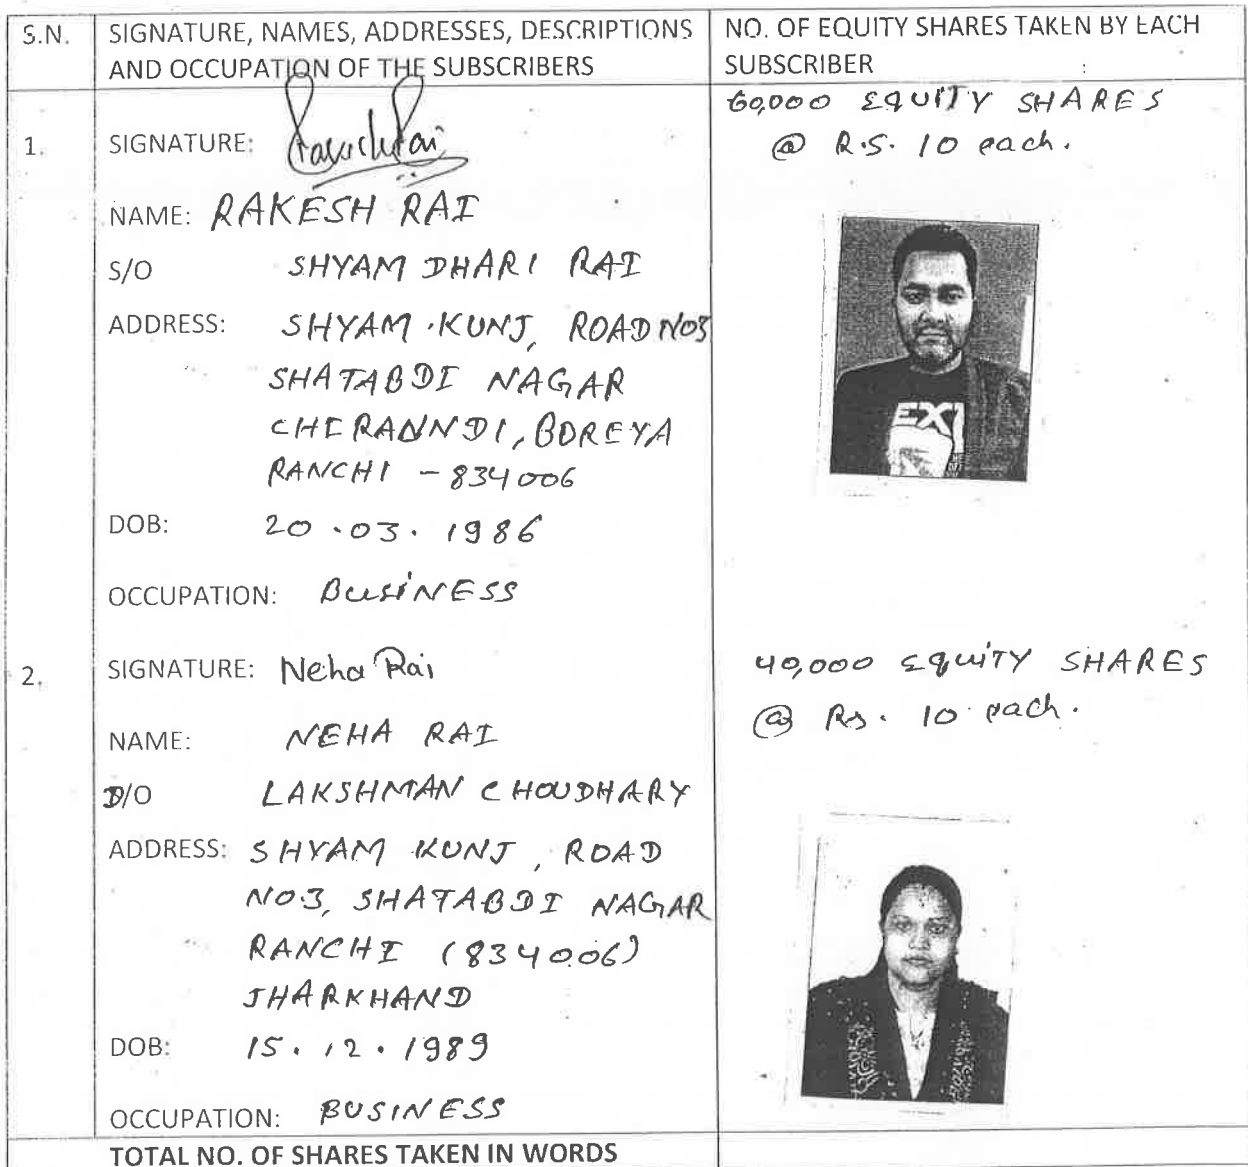 S.N.
SIGNATURE, NAMES, ADDRESSES, DESCRIPTIONS
AND OCCUPATION OF THE SUBSCRIBERS
NO. OF EQUITY SHARES TAKEN BY EACH
SUBSCRIBER
1.
SIGNATURE:
60,000 EQUITY SHARES
@ R.S. 10 each.
NAME: RAKESH RAI
S/O SHYAM DHARI RAI
ADDRESS: SHYAM KUNJ, ROAD NO3
SHATABDI NAGAR
CHIRANNDI, BOREYA
RANCHI - 834006
DOB: 20.03.1986
OCCUPATION: BUSINESS
EX
2.
SIGNATURE: Neha Rai
40,000 EQUITY SHARES
@ Rs. 10 each.
NAME: NEHA RAI
D/O LAKSHMAN CHOUDHARY
ADDRESS: SHYAM KUNJ, ROAD
NO.3, SHATABDI NAGAR
RANCHI (834006)
JHARKHAND
DOB: 15.12.1989
OCCUPATION: BUSINESS
TOTAL NO. OF SHARES TAKEN IN WORDS